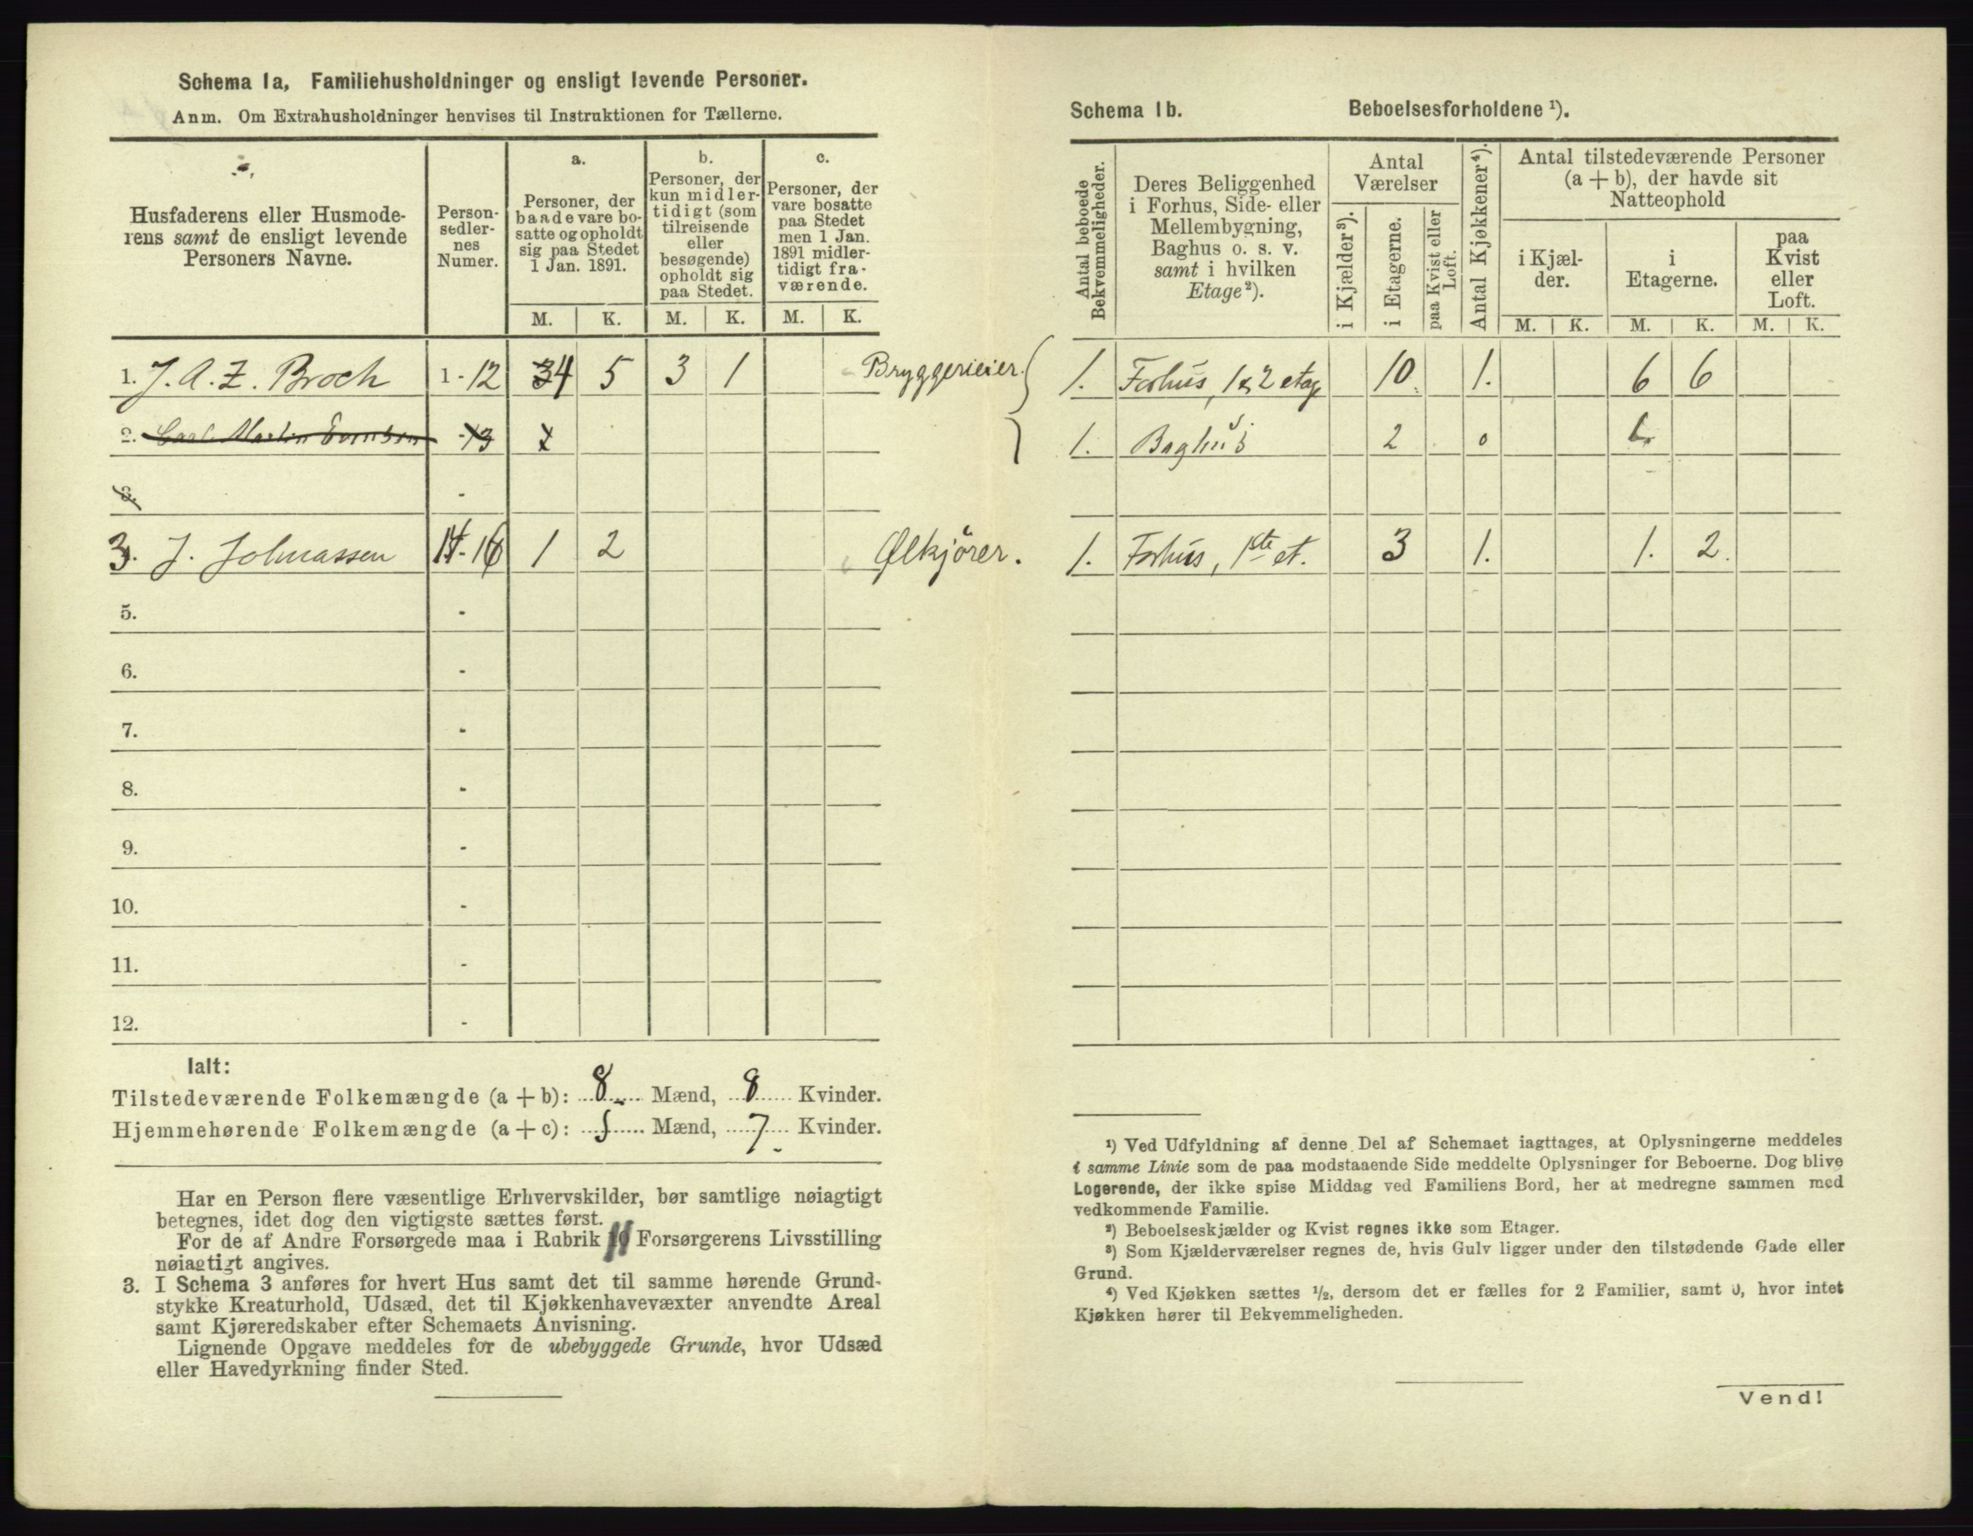 Schema 1a, Familiehusholdninger og ensligt levende Personer.
Anm. Om Extrahusholdninger henvises til Instruktionen for Tællerne.
Husfaderens eller Husmode-
rens samt de ensligt levende
Personers Navne.
Person-
sedler-
nes
Numer.
a.
Personer, der
baade vare bo-
satte og opholdt
sig paa Stedet
1 Jan. 1891.
b.
Personer, der
kun midler-
tidigt (som
tilreisende
eller
besøgende)
opholdt sig
paa Stedet.
c.
Personer, der
vare bosatte
paa Stedet
men 1 Jan.
1891 midler-
tidigt fra-
værende.
M. K. M. K. M. K.
1. J. A. Z. Broch 1-12 4 5 3 1 Bryggerieier.
2. Carl Martin -13
3.
3. J. Johnassen 14-16 1 2 Ølkjører.
5. -
6. -
7. -
8. -
9. -
10. -
11. -
12. -
Ialt:
Tilstedeværende Folkemængde (a + b): 8 Mænd, 8 Kvinder.
Hjemmehørende Folkemængde (a + c): 5 Mænd, 7 Kvinder.
Har en Person flere væsentlige Erhvervskilder, bør samtlige nøiagtigt
betegnes, idet dog den vigtigste sættes først.
For de af Andre Forsørgede maa i Rubrik 11 Forsørgerens Livsstilling
nøiagtigt angives.
3. I Schema 3 anføres for hvert Hus samt det til samme hørende Grund-
stykke Kreaturhold, Udsæd, det til Kjøkkenhavevæxter anvendte Areal
samt Kjøreredskaber efter Schemaets Anvisning.
Lignende Opgave meddeles for de ubebyggede Grunde, hvor Udsæd
eller Havedyrkning finder Sted.
Schema 1b. Beboelsesforholdene ¹).
Antal beboede
Bekvemmeligheder.
Deres Beliggenhed
i Forhus, Side- eller
Mellembygning,
Baghus o. s. v.
samt i hvilken
Etage²).
Antal
Værelser
i Kjælder³).
i Etagerne.
paa Kvist eller
Loft.
Antal Kjøkkener⁴).
Antal tilstedeværende Personer
(a + b), der havde sit
Natteophold
i Kjæl-
der.
i
Etagerne.
paa
Kvist
eller
Loft.
M. K. M. K. M. K.
1. Forhus, 1 & 2 etag 10. 1. 6 6
1. Baghus 2 0
1. Forhus, 1ste et. 3 1. 1. 2.
¹) Ved Udfyldning af denne Del af Schemaet iagttages, at Oplysningerne meddeles
i samme Linie som de paa modstaaende Side meddelte Oplysninger for Beboerne. Dog blive
Logerende, der ikke spise Middag ved Familiens Bord, her at medregne sammen med
vedkommende Familie.
²) Beboelseskjælder og Kvist regnes ikke som Etager.
³) Som Kjælderværelser regnes de, hvis Gulv ligger under den tilstødende Gade eller
Grund.
⁴) Ved Kjøkken sættes ½, dersom det er fælles for 2 Familier, samt 0, hvor intet
Kjøkken hører til Bekvemmeligheden.
Vend!